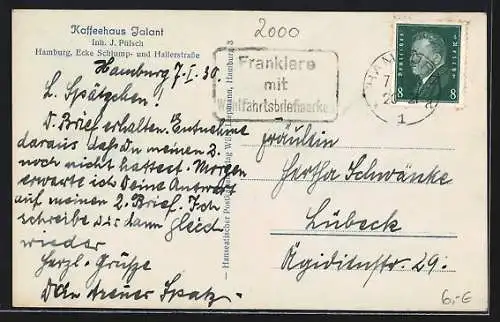 Kaffeehaus Jalant
Inh. J. Pülsch
Hamburg, Ecke Schlump- und Hallerstraße
2000
Hamburg 7-I. 30.
L. Spätzchen!
D. Brief erhalten. Entnehme
daraus daß Du meinen 2.
noch nicht hattest. Morgen
erwarte ich Deine Antwort
auf meinen 2. Brief. Ich
schreibe Dir dann gleich
wieder
Herzl. Grüße
Dein treuer Spatz.
Frankiere
mit
Wohlfahrtsbriefmarken
Deutsches Reich
8 8
1
Hanseatischer Postkartenverlag Hamburg 3
Fräulein
Hertha Schwänke
Lübeck
Ägidienstr. 29.
6,-€